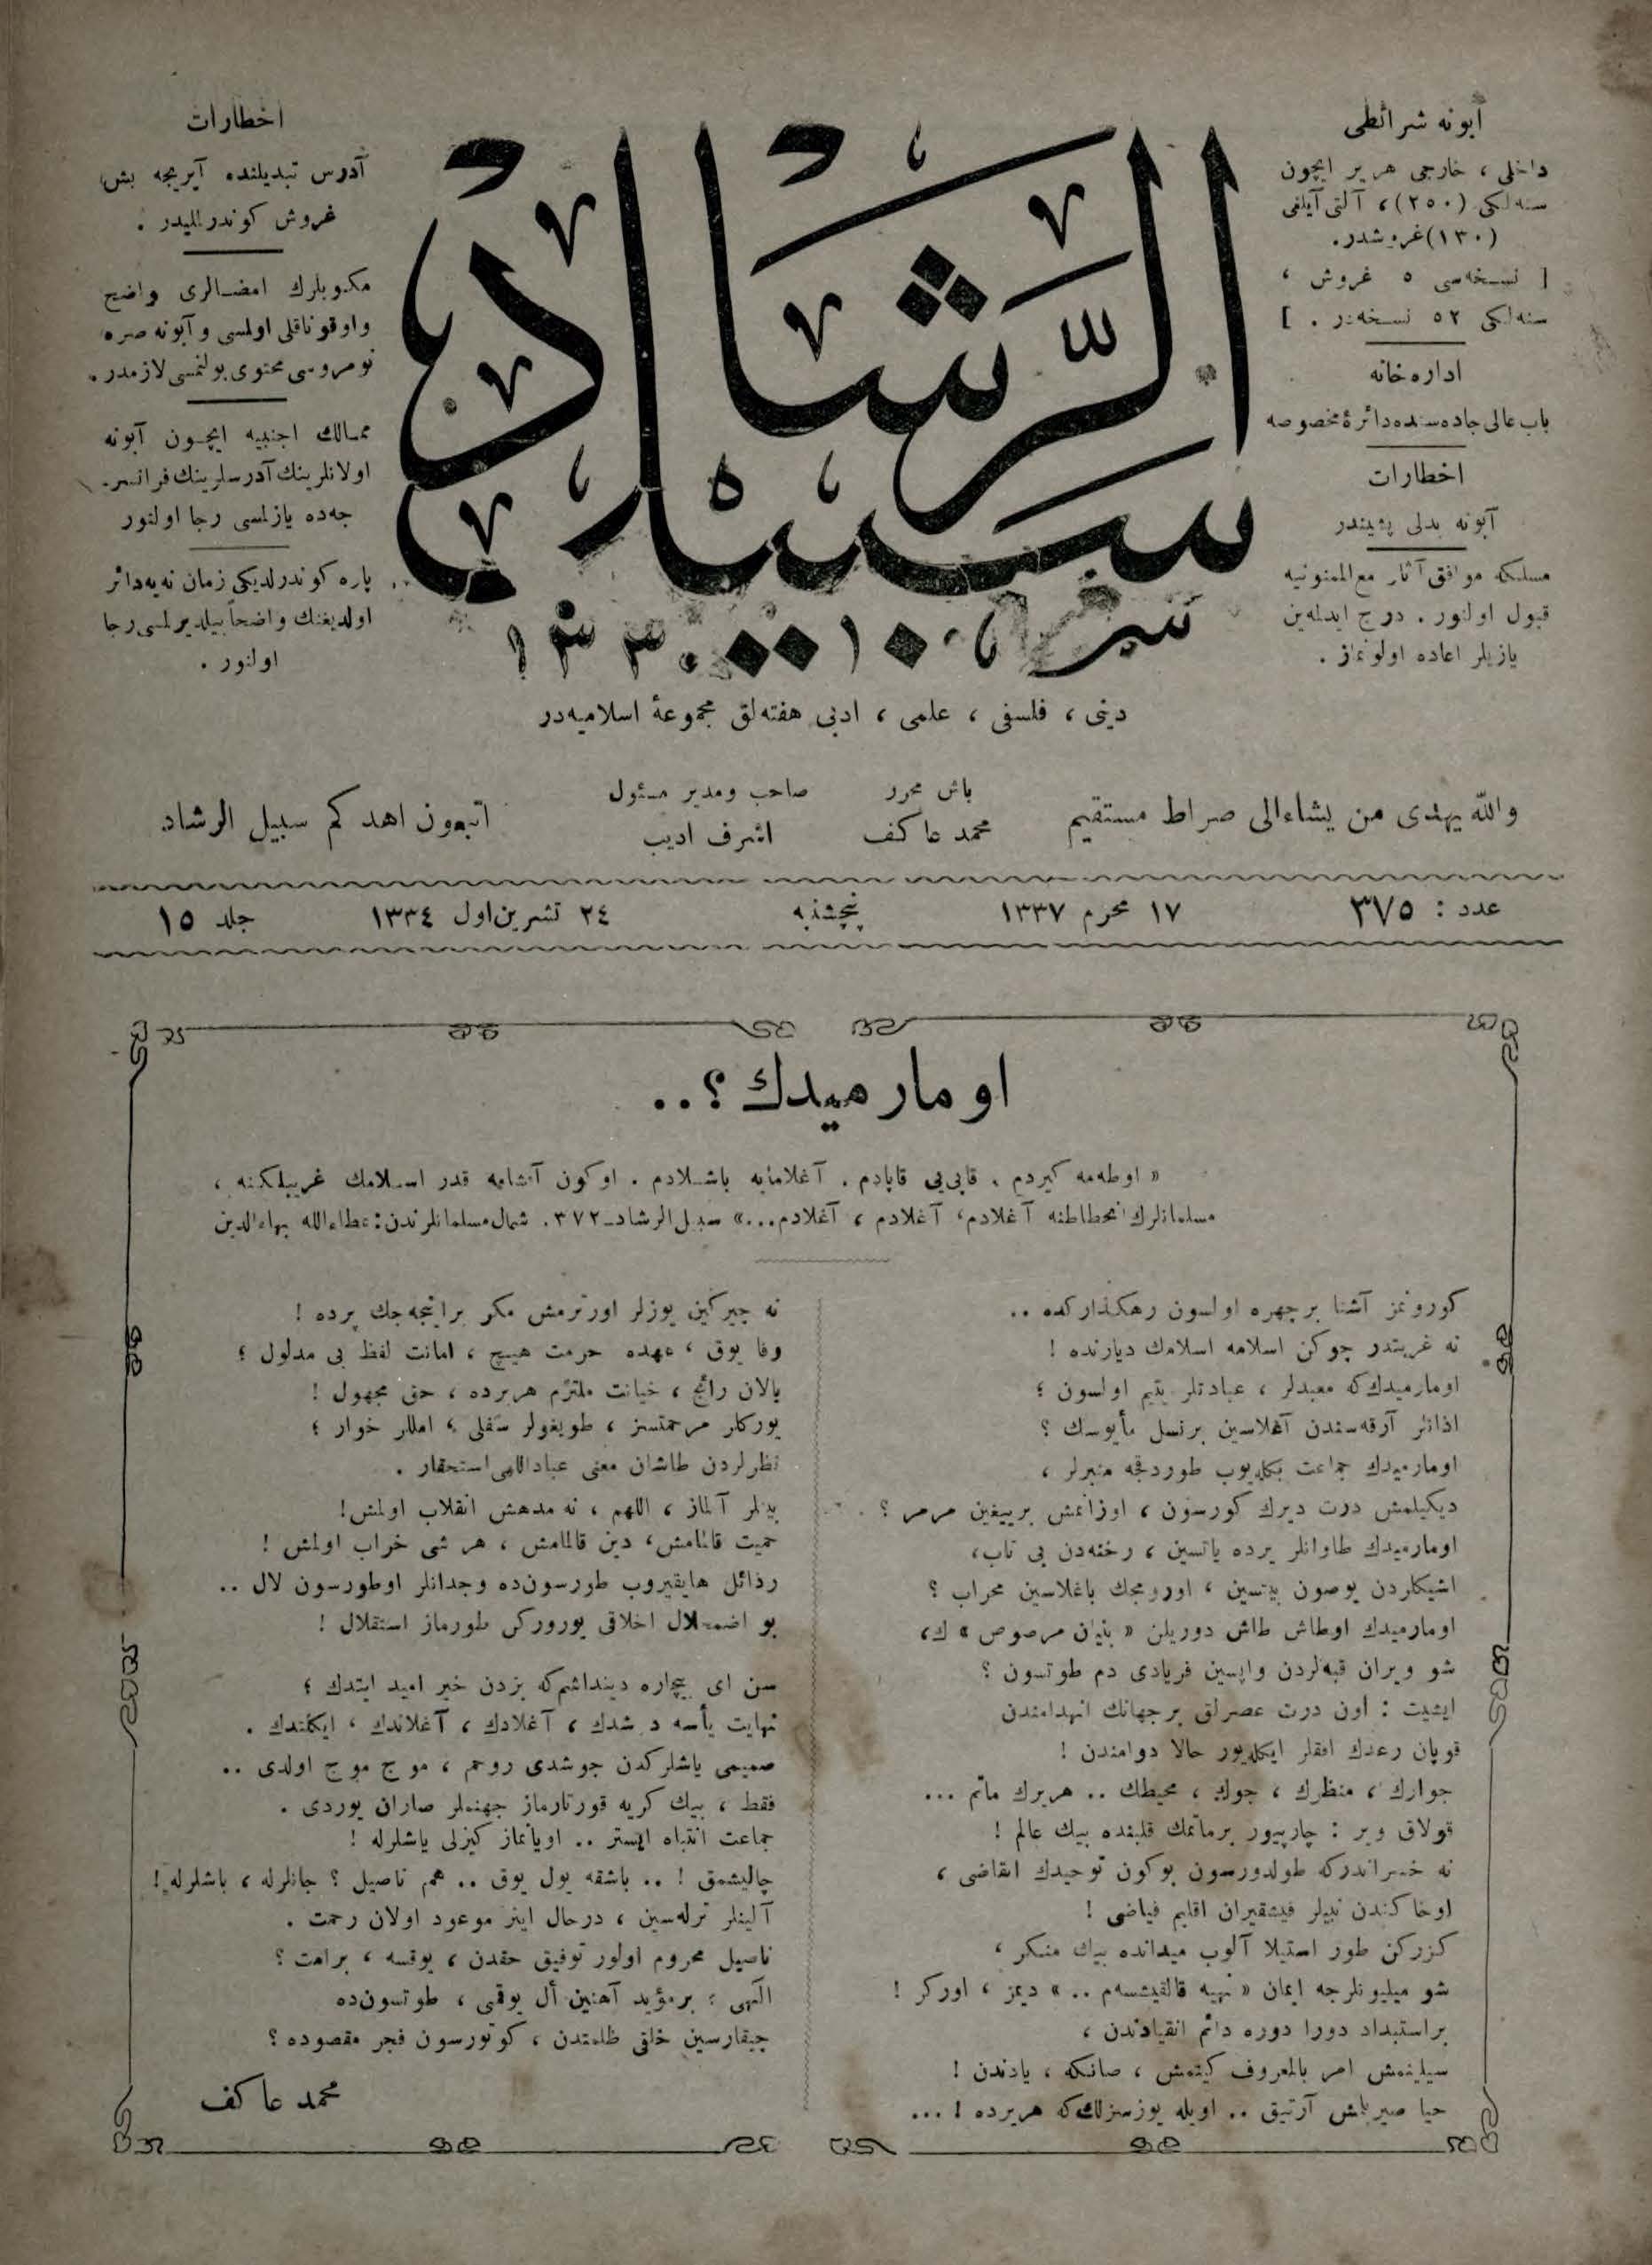 آبونه شرائطی
داخلی ، خارجی هر یر ایچون
سنه‌لکی (٢٥٠) ، آلتی آیلغی
(١٣٠) غروشدر.
[ نسخه‌سی ٥ غروش ،
سنه‌لکی ٥٢ نسخه‌در . ]
اداره‌خانه
باب عالی جاده‌سنده دائرۀ مخصوصه
اخطارات
آبونه بدلی پشیندر
مسلکه موافق آثار مع الممنونیه
قبول اولنور . درج ایدلمه‌ین
یازیلر اعاده اولونماز .
سبیل الرشاد
١٣٣٠
دینی ، فلسفی ، علمی ، ادبی هفته‌لق مجموعۀ اسلامیه‌در
اخطارات
آدرس تبدیلنده آیریجه بش
غروش کوندرلملیدر .
مکتوبلرك امضالری واضح
واوقوناقلی اولمسی وآبونه صره
نومروسی محتوی بولنمسی لازمدر .
ممالك اجنبیه ایچون آبونه
اولانلرینك آدرسلرینك فرانسز-
جه‌ده یازلمسی رجا اولنور
پاره کوندرلدیکی زمان نه‌یه دائر
اولدیغنك واضحاً بیلدیرلمسی رجا
اولنور .
والله یهدی من یشاء الی صراط مستقیم
باش محرر
محمد عاکف
صاحب ومدیر مسئول
اشرف ادیب
اتبعون اهدکم سبیل الرشاد
عدد : ٣٧٥
١٧ محرم ١٣٣٧
پنچشنبه
٢٤ تشرین اول ١٣٣٤
جلد ١٥
اومارمیدك ؟..
« اوطه‌مه کیردم . قاپی‌یی قاپادم . آغلامایه باشلادم . اوکون آقشامه قدر اسلامك غریبلکنه ،
مسلمانلرك انحطاطنه آغلادم ، آغلادم ، آغلادم...» سبیل الرشاد-٣٧٢. شمال مسلمانلرندن : عطاءالله بهاءالدین
کورونمز آشنا بر چهره اولسون رهکذارکده ..
نه غربتدر چوکن اسلامه اسلامك دیارنده !
اومارمیدك که معبدلر ، عبادتلر یتیم اولسون ؛
اذانلر آرقه‌سندن آغلاسین برنسل مأیوسك ؟
اومارمیدك جماعت بکله‌یوب طوردقجه منبرلر ،
دیکیلمش درت دیرك کورسون ، اوزانمش بر ییغین مرمر ؟
اومارمیدك طاوانلر یرده یاتسین ، رخنه‌دن بی تاب ،
اشیکلردن یوصون بیتسین ، اورومجك باغلاسین محراب ؟
اومارمیدك اوطاش طاش دوریلن « بنیان مرصوص » ك ،
شو ویران قبه‌لردن واپسین فریادی دم طوتسون ؟
ایشیت : اون درت عصرلق برجهانك انهدامندن
قوپان رعدك افقلر ایکله‌یور حالا دوامندن !
جوارك ، منظرك ، جوك ، محیطك .. هریرك ماتم ...
قولاق ویر : چارپیور برماتمك قلبنده بیك عالم !
نه خسراندرکه طولدورسون بوکون توحیدك انقاضی ،
اوخاکندن نبیلر فیشقیران اقلیم فیاضی !
کزرکن طور استیلا آلوب میدانده بیك منکر ،
شو میلیونلرجه ایمان « نه‌یه قالقیشسه‌م .. » دیمز ، اورکر !
براستبداد دورا دوره دائم انقیادندن ،
سیلینمش امر بالمعروف کیتمش ، صانکه ، یادندن !
حیا صیریلمش آرتیق .. اویله یوزسزلك که هریرده ! ...
نه چیرکین یوزلر اورترمش مکر برانجه‌جك پرده !
وفا یوق ، عهده حرمت هیچ ، امانت لفظ بی مدلول ؛
یالان رائج ، خیانت ملتزم هریرده ، حق مجهول !
یورکلر مرحمتسز ، طویغولر سفلی ، امللر خوار ؛
نظرلردن طاشان معنی عباداللهی استحقار .
بیدلر آلماز ، اللهم ، نه مدهش انقلاب اولمش!
حمیت قالمامش ، دین قالمامش ، هر شی خراب اولمش !
رذائل هایقیروب طورسون‌ده وجدانلر اوطورسون لال ..
بو اضمحلال اخلاقی یورورکن طورماز استقلال !
سن ای بیچاره دینداشم که بزدن خیر امید ایتدك ؛
نهایت یأسه دوشدك ، آغلادك ، آغلاندك ، ایکلتدك .
صمیمی یاشلرکدن جوشدی روحم ، موج موج اولدی ..
فقط ، بیك کریه قورتارماز جهنملر صاران یوردی .
جماعت انتباه ایستر .. اویانماز کیزلی یاشلرله !
چالیشمق ! .. باشقه یول یوق .. هم ناصیل ؟ جانلرله ، باشلرله !
آلینلر ترله‌سین ، درحال اینر موعود اولان رحمت .
ناصیل محروم اولور توفیق حقدن ، یوقسه ، برامت ؟
الهی ؛ برمؤید آهنین أل یوقمی ، طوتسون‌ده
چیقارسین خلقی ظلمتدن ، کوتورسون فجر مقصوده ؟
محمد عاکف